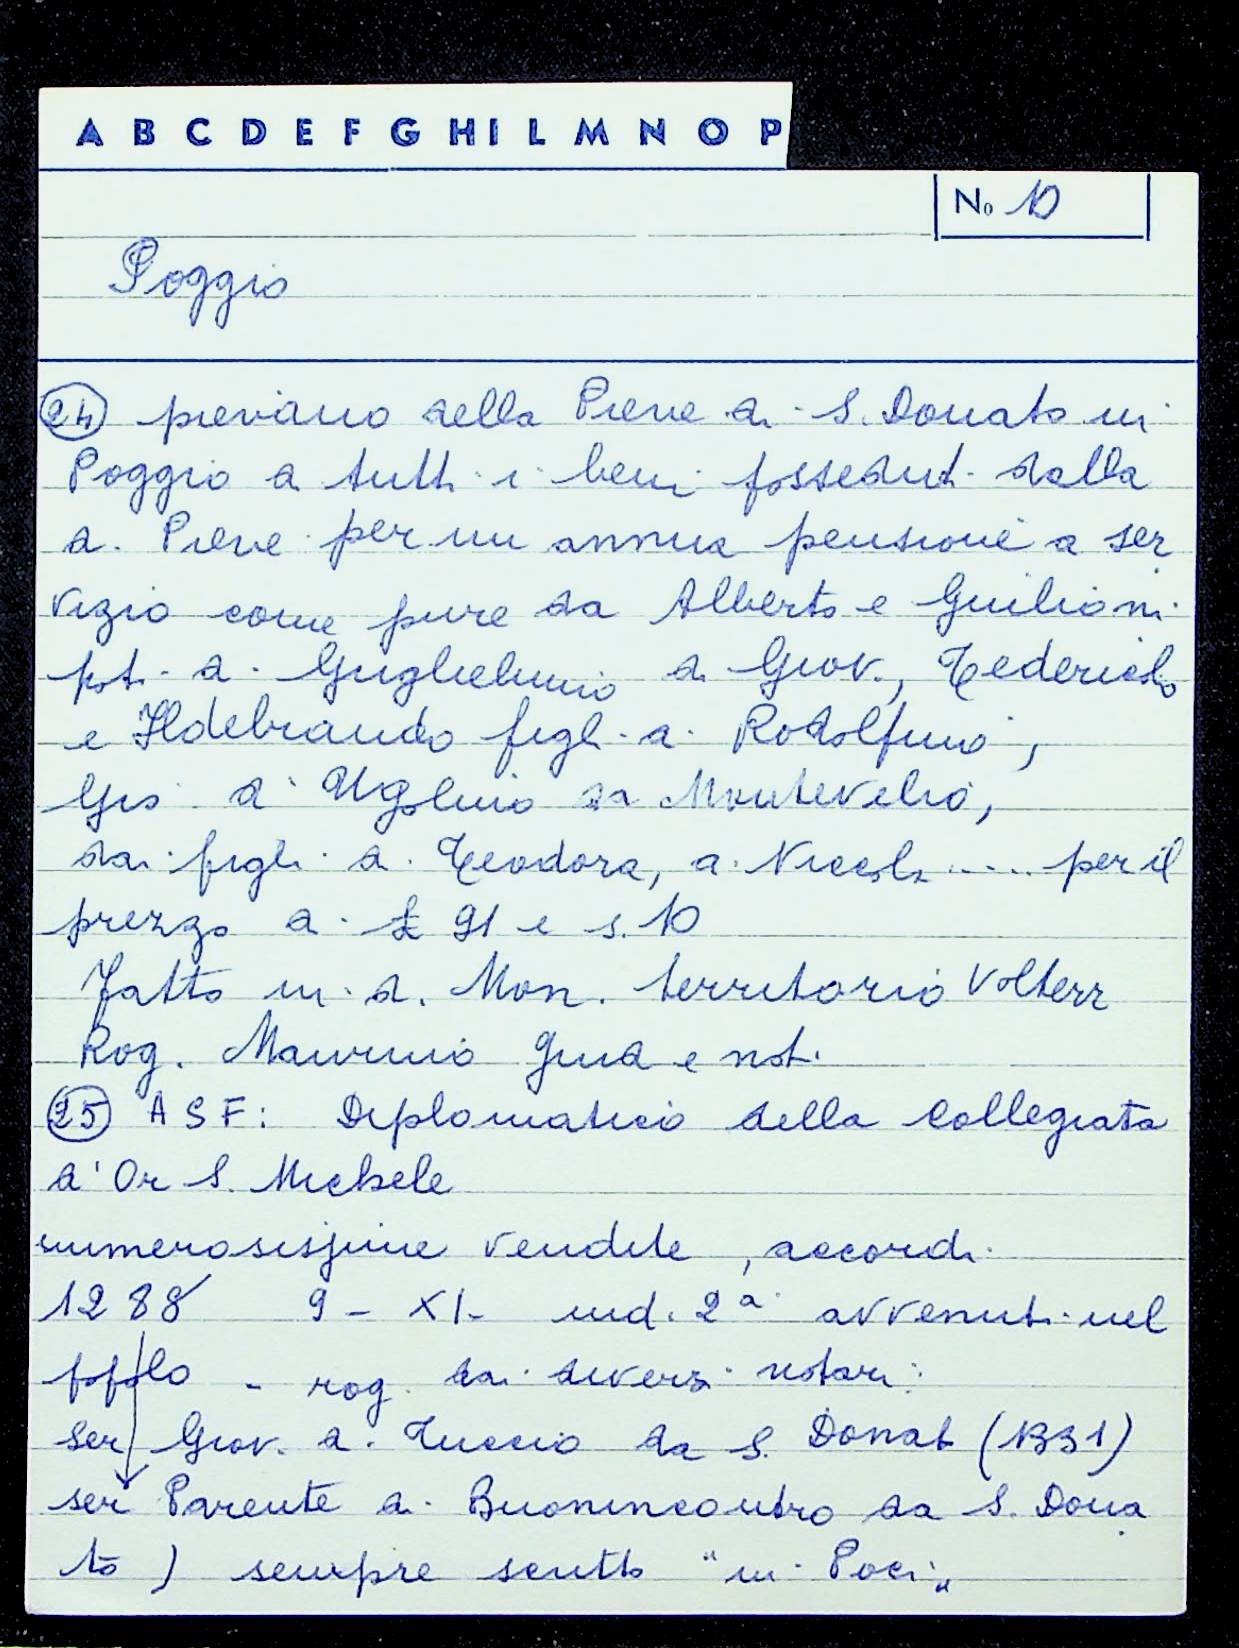 A B C D E F G H I L M N O P
No 10
Poggio
24 pievano della Pieve di S. Donato in
Poggio di tutti i beni posseduti dalla
d. Pieve per un annua pensione a ser
vizio come pure da Alberto e
di Guglielmino di Giov., Tederico
e Ildebrando figli di Rodolfino,
d' Ugolino da Montevelio,
dai figli di Teodora, di Nicola ..... per il
prezzo di £ 91 e s. 10
Fatto in d. Mon. territorio Volterr
Rog. Maurino Giud e not.
25 ASF: Diplomatico della Collegiata
d' Or S. Michele
numerosissime vendite, accordi
1288 9 - XI - ind. 2a avvenuti nel
popolo - rog. dai diversi notari:
ser Giov. di Tuccio da S. Donat (1331)
ser Parente di Buonincontro da S. Dona
to ) sempre scritto "in Poci"